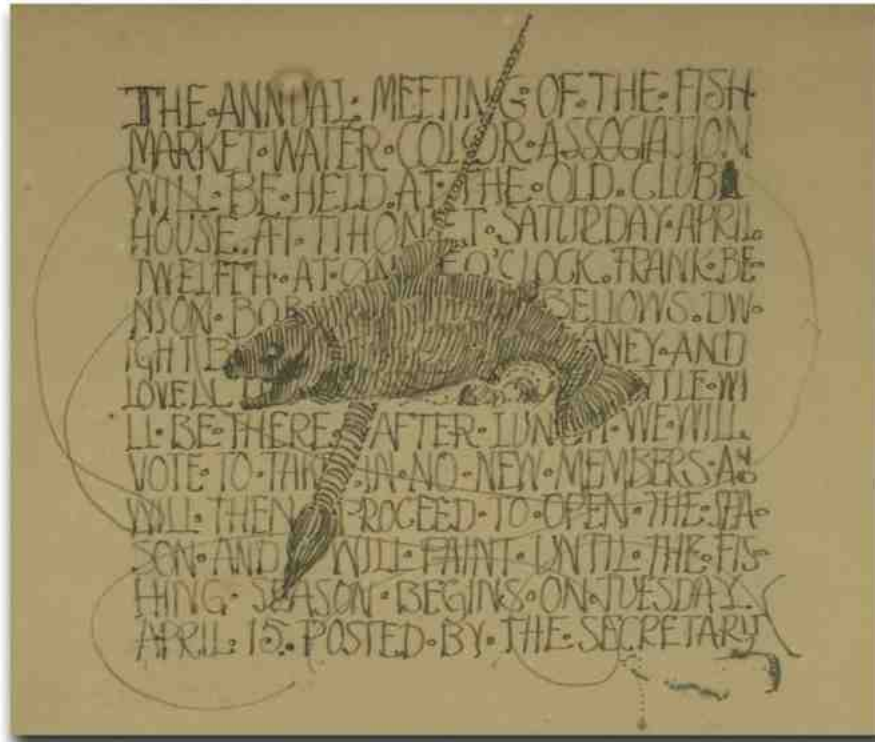 THE·ANNUAL·MEETING·OF·THE·FISH·
MARKET·WATER·COLOR·ASSOCIATION
WILL·BE·HELD·AT·THE·OLD·CLUB
HOUSE·AT·TIHONET·SATURDAY·APRIL·
TWELFTH·AT·ONE·O'CLOCK·FRANK·BE-
NSON· BELLOWS·DW-
IGHT· AND
LOVELL· WI
LL·BE·THERE·AFTER·LUNCH·WE·WILL·
VOTE·TO·TAKE·IN·NO·NEW·MEMBERS·
WILL·THEN·PROCEED·TO·OPEN·THE·SEA-
SON·AND·WILL·PAINT·UNTIL·THE·FIS-
HING·SEASON·BEGINS·ON·TUESDAY·
APRIL·15·POSTED·BY·THE·SECRETARY